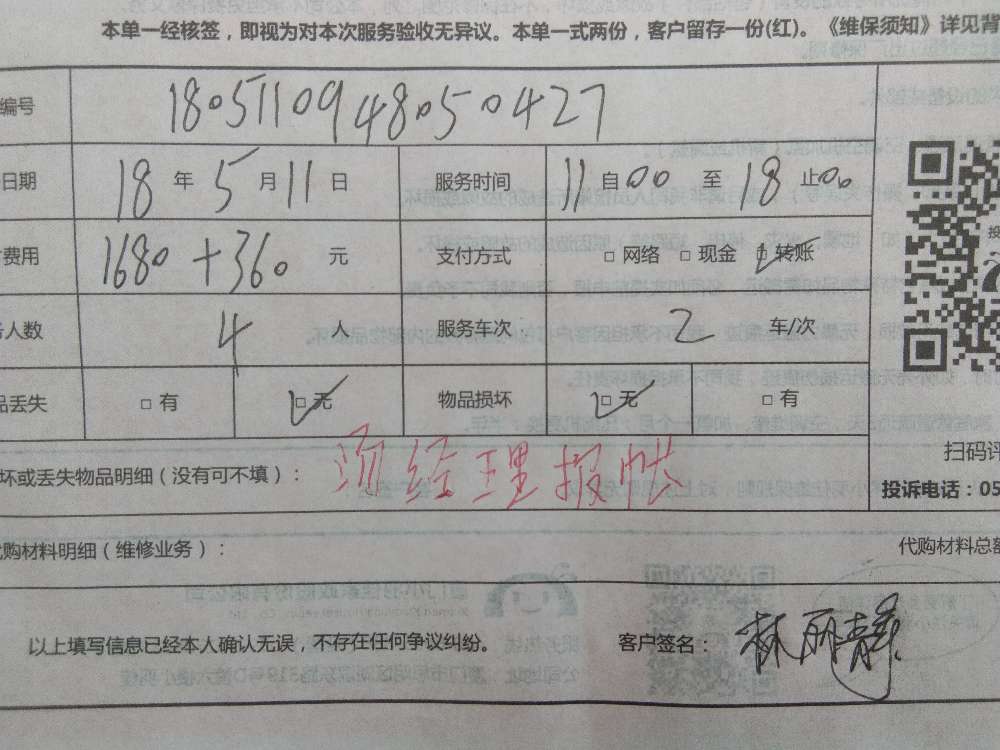 本单一经核签，即视为对本次服务验收无异议。本单一式两份，客户留存一份(红)。《维保须知》详见背
编号 1805110948050427
日期 18 年 5 月 11 日 服务时间 11 自00 至 18 止00
费用 1680+360 元 支付方式 □ 网络 □ 现金 □ 转账
人数 4 人 服务车次 2 车/次
品丢失 □ 有 □ 无 物品损坏 □ 无 □ 有
扫码评
坏或丢失物品明细（没有可不填）： 经理报帐
投诉电话：05
代购材料明细（维修业务）： 代购材料总额
以上填写信息已经本人确认无误，不存在任何争议纠纷。 客户签名： 林丽静